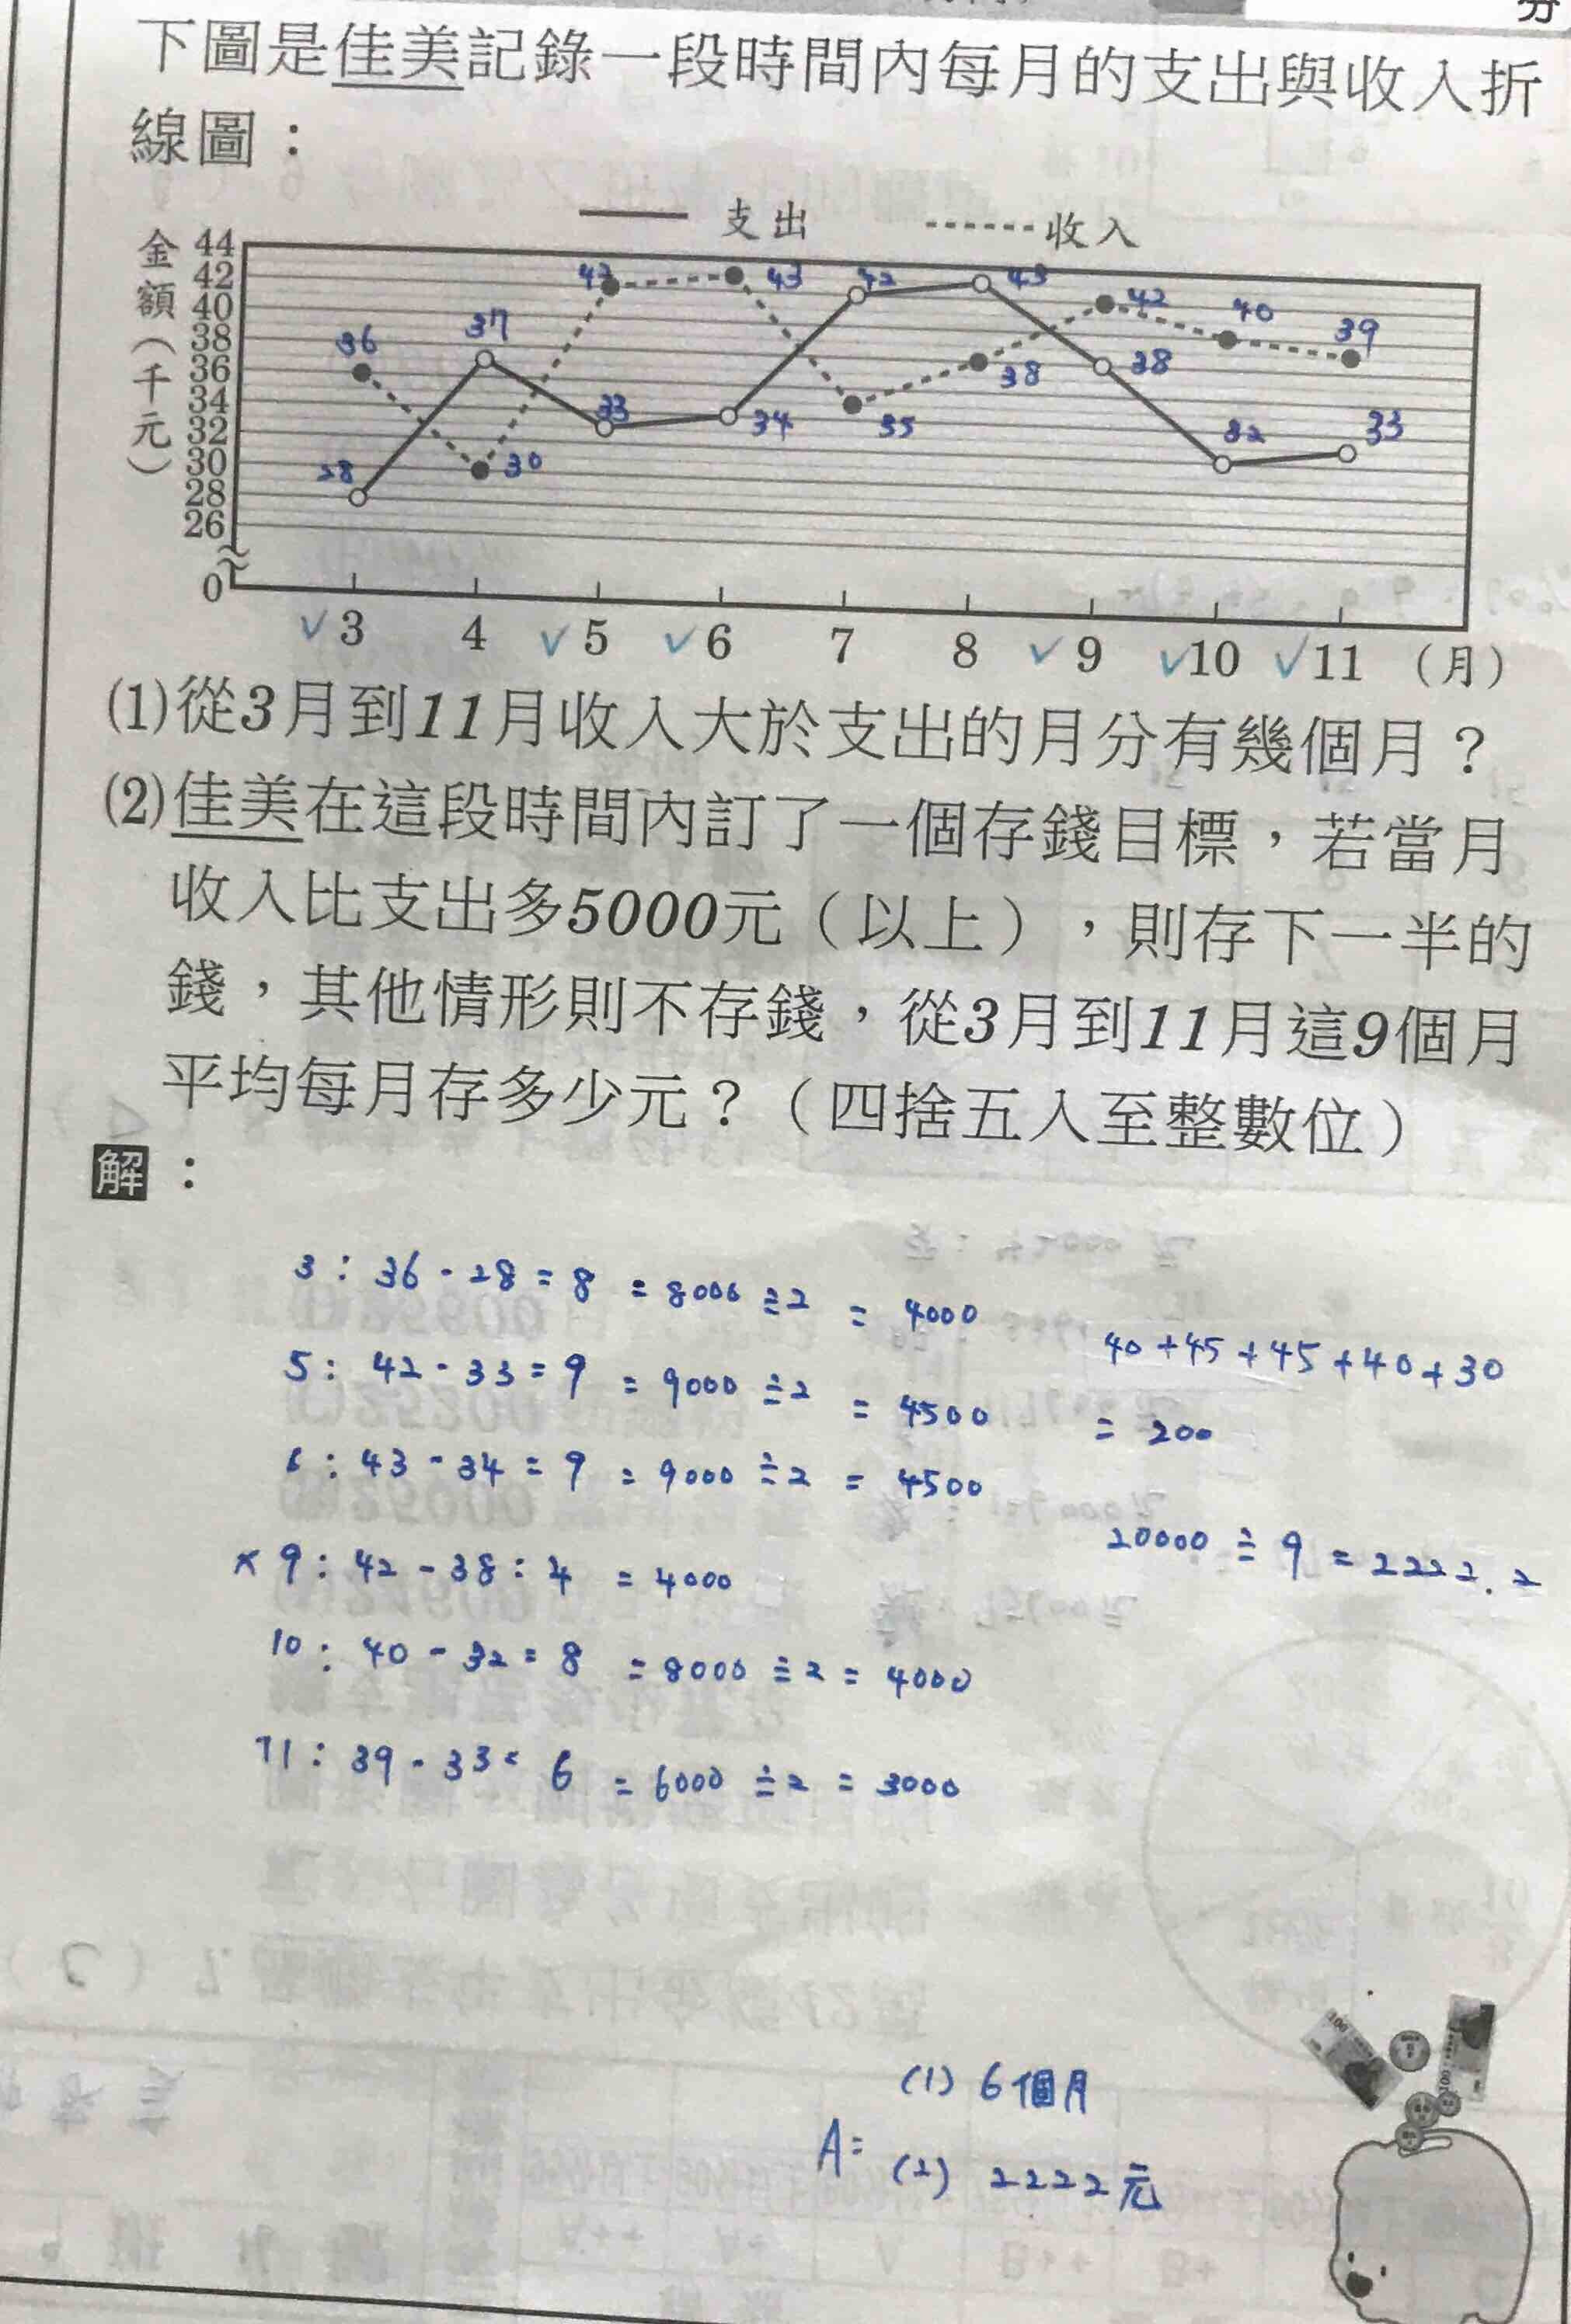 下圖是佳美記錄一段時間內每月的支出與收入折
線圖：
支出 收入
金額（千元）
44
42
40
38
36
34
32
30
28
26
0
36 37 42 43 42 43 42 40 39
28 30 33 34 35 38 38 32 33
✓3 4 ✓5 ✓6 7 8 ✓9 ✓10 ✓11 （月）
(1)從3月到11月收入大於支出的月分有幾個月？
(2)佳美在這段時間內訂了一個存錢目標，若當月
收入比支出多5000元（以上），則存下一半的
錢，其他情形則不存錢，從3月到11月這9個月
平均每月存多少元？（四捨五入至整數位）
解：
3：36-28=8 =8000÷2 = 4000
40+45+45+40+30
5：42-33=9 =9000÷2 = 4500
= 200
6：43-34=9 =9000÷2 = 4500
20000÷9=2222.2
×9：42-38：4 =4000
10：40-32=8 =8000÷2=4000
11：39-33=6 =6000÷2=3000
(1) 6個月
A=
(2) 2222元